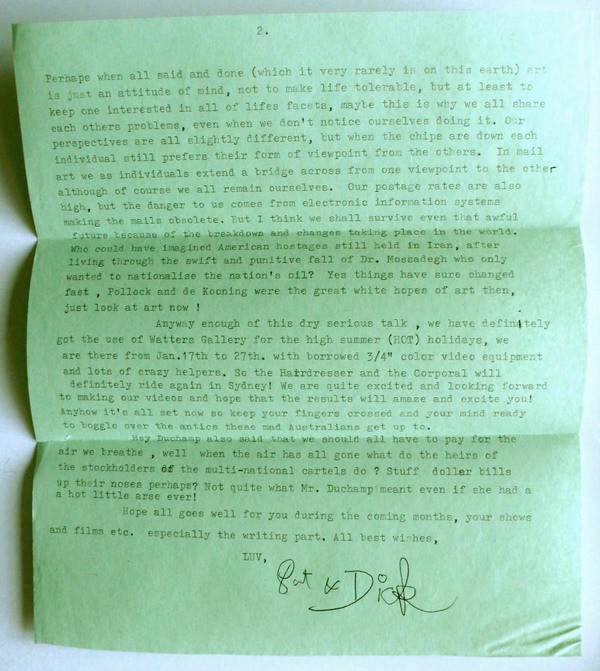 2.
Perhaps when all said and done (which it very rarely is on this earth) art
is just an attitude of mind, not to make life tolerable, but at least to
keep one interested in all of lifes facets, maybe this is why we all share
each others problems, even when we don't notice ourselves doing it. Our
perspectives are all slightly different, but when the chips are down each
individual still prefers their form of viewpoint from the others. In mail
art we as individuals extend a bridge across from one viewpoint to the other
although of course we all remain ourselves. Our postage rates are also
high, but the danger to us comes from electronic information systems
making the mails obsolete. But I think we shall survive even that awful
future because of the breakdown and changes taking place in the world.
Who could have imagined American hostages still held in Iran, after
living through the swift and punitive fall of Dr. Mossadegh who only
wanted to nationalise the nation's oil? Yes things have sure changed
fast , Pollock and de Kooning were the great white hopes of art then,
just look at art now !
Anyway enough of this dry serious talk , we have definately
got the use of Watters Gallery for the high summer (HOT) holidays, we
are there from Jan.17th to 27th. with borrowed 3/4" color video equipment
and lots of crazy helpers. So the Hairdresser and the Corporal will
definitely ride again in Sydney! We are quite excited and looking forward
to making our videos and hope that the results will amaze and excite you!
Anyhow it's all set now so keep your fingers crossed and your mind ready
to boggle over the antics these mad Australians get up to.
Hey Duchamp also said that we should all have to pay for the
air we breathe , well when the air has all gone what do the heirs of
the stockholders of the multi-national cartels do ? Stuff dollar bills
up their noses perhaps? Not quite what Mr. Duchamp meant even if she had a
a hot little arse ever!
Hope all goes well for you during the coming months, your shows
and films etc. especially the writing part. All best wishes,
LUV,
Pat & Dick